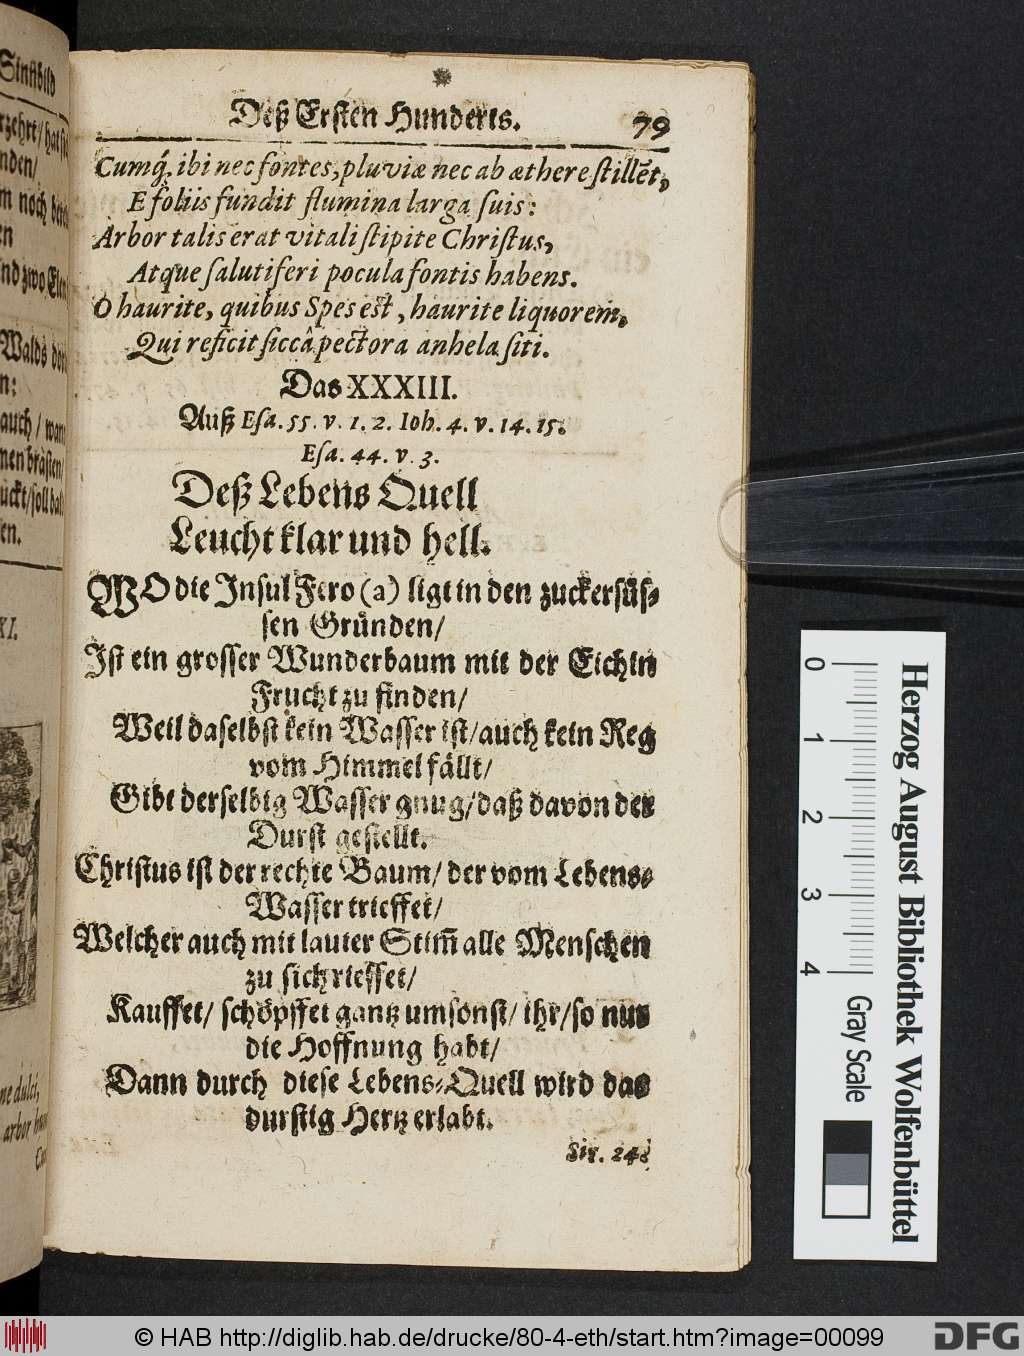 Sinnbild
zehrt/ hat
nden/
m noch
en
nd zwo Elen
Walds
n:
auch / wan
nen bräften/
uckt/ soll
en.
XI.
me dulci,
arbor
Deß Ersten Hunderts. 79
Cumq́; ibi nec fontes, pluviæ nec ab æthere ſtillẽt,
E foliis fundit flumina larga ſuis:
Arbor talis erat vitali ſtipite Chriſtus,
Atque ſalutiferi pocula fontis habens.
O haurite, quibus Spes eſt, haurite liquorem,
Qui reficit ſiccâ pectora anhela ſiti.
Das XXXIII.
Auß Eſa. 55. v. 1. 2. Ioh. 4. v. 14. 15.
Eſa. 44. v. 3.
Deß Lebens Quell
Leucht klar und hell.
WO die Inſul Fero (a) ligt in den zuckerſüſ-
ſen Gründen/
Iſt ein groſſer Wunderbaum mit der Eichin
Frucht zu finden/
Weil daſelbſt kein Waſſer iſt/ auch kein Reg
vom Himmel fällt/
Gibt derſelbig Waſſer gnug/ daß davon der
Durſt geſtellt.
Chriſtus iſt der rechte Baum/ der vom Lebens-
Waſſer trieffet/
Welcher auch mit lauter Stim̃ alle Menſchen
zu ſich rieffet/
Kauffet/ ſchöpffet gantz umſonſt/ ihr/ ſo nur
die Hoffnung habt/
Dann durch dieſe Lebens-Quell wird das
durſtig Hertz erlabt.
Sir. 24.
0 1 2 3 4
Gray Scale
Herzog August Bibliothek Wolfenbüttel
© HAB http://diglib.hab.de/drucke/80-4-eth/start.htm?image=00099
DFG